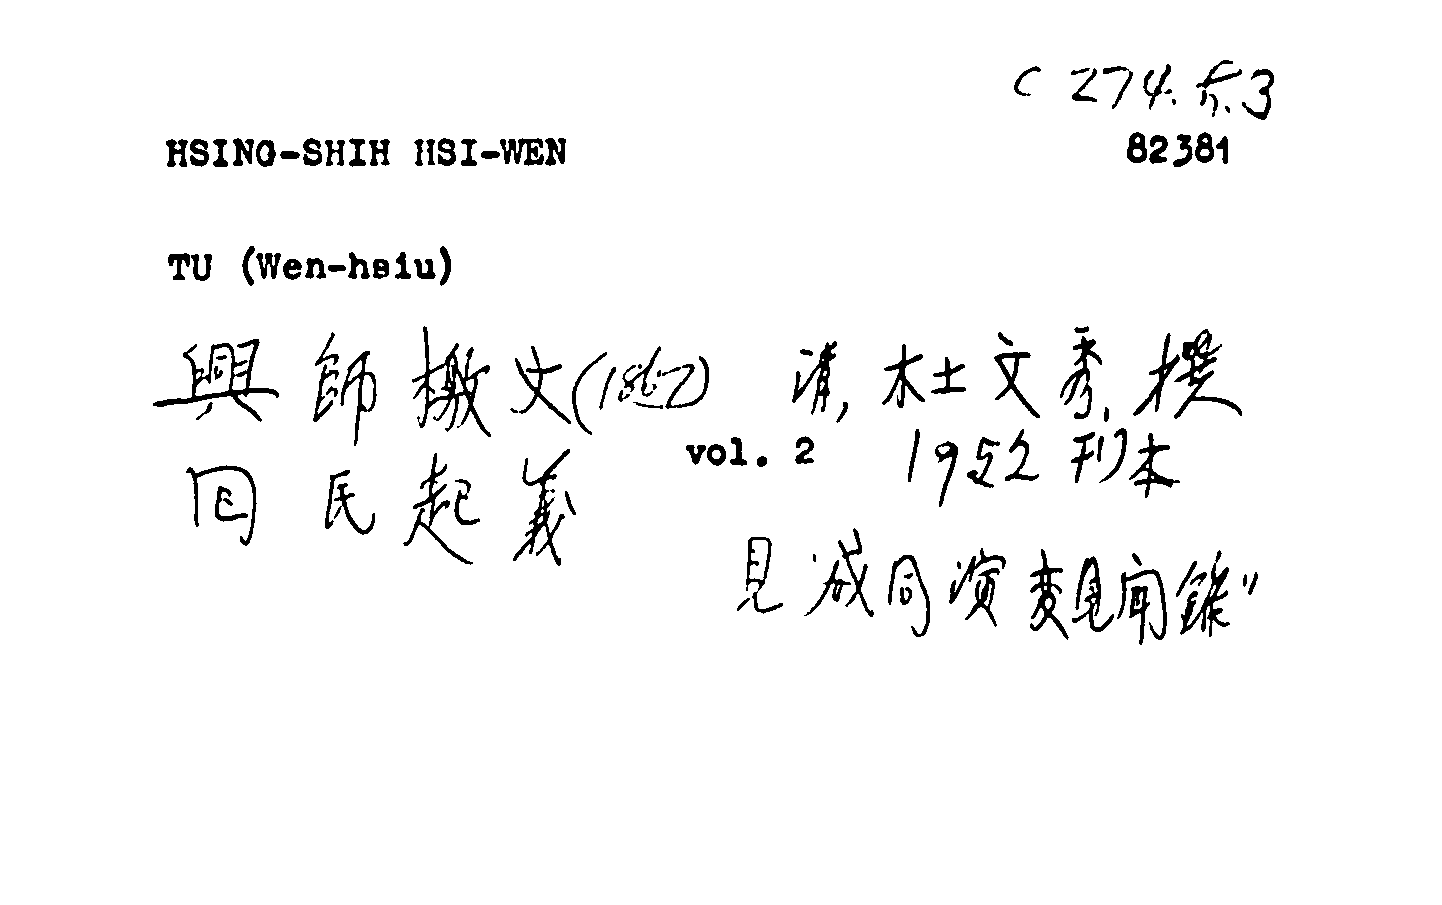 C 274.5.3
HSING-SHIH HSI-WEN 82381
TU (Wen-hsiu)
興師檄文(1867) 清,杜文秀,撰
回民起義 vol. 2 1952刊本
見咸同滇變見聞錄"